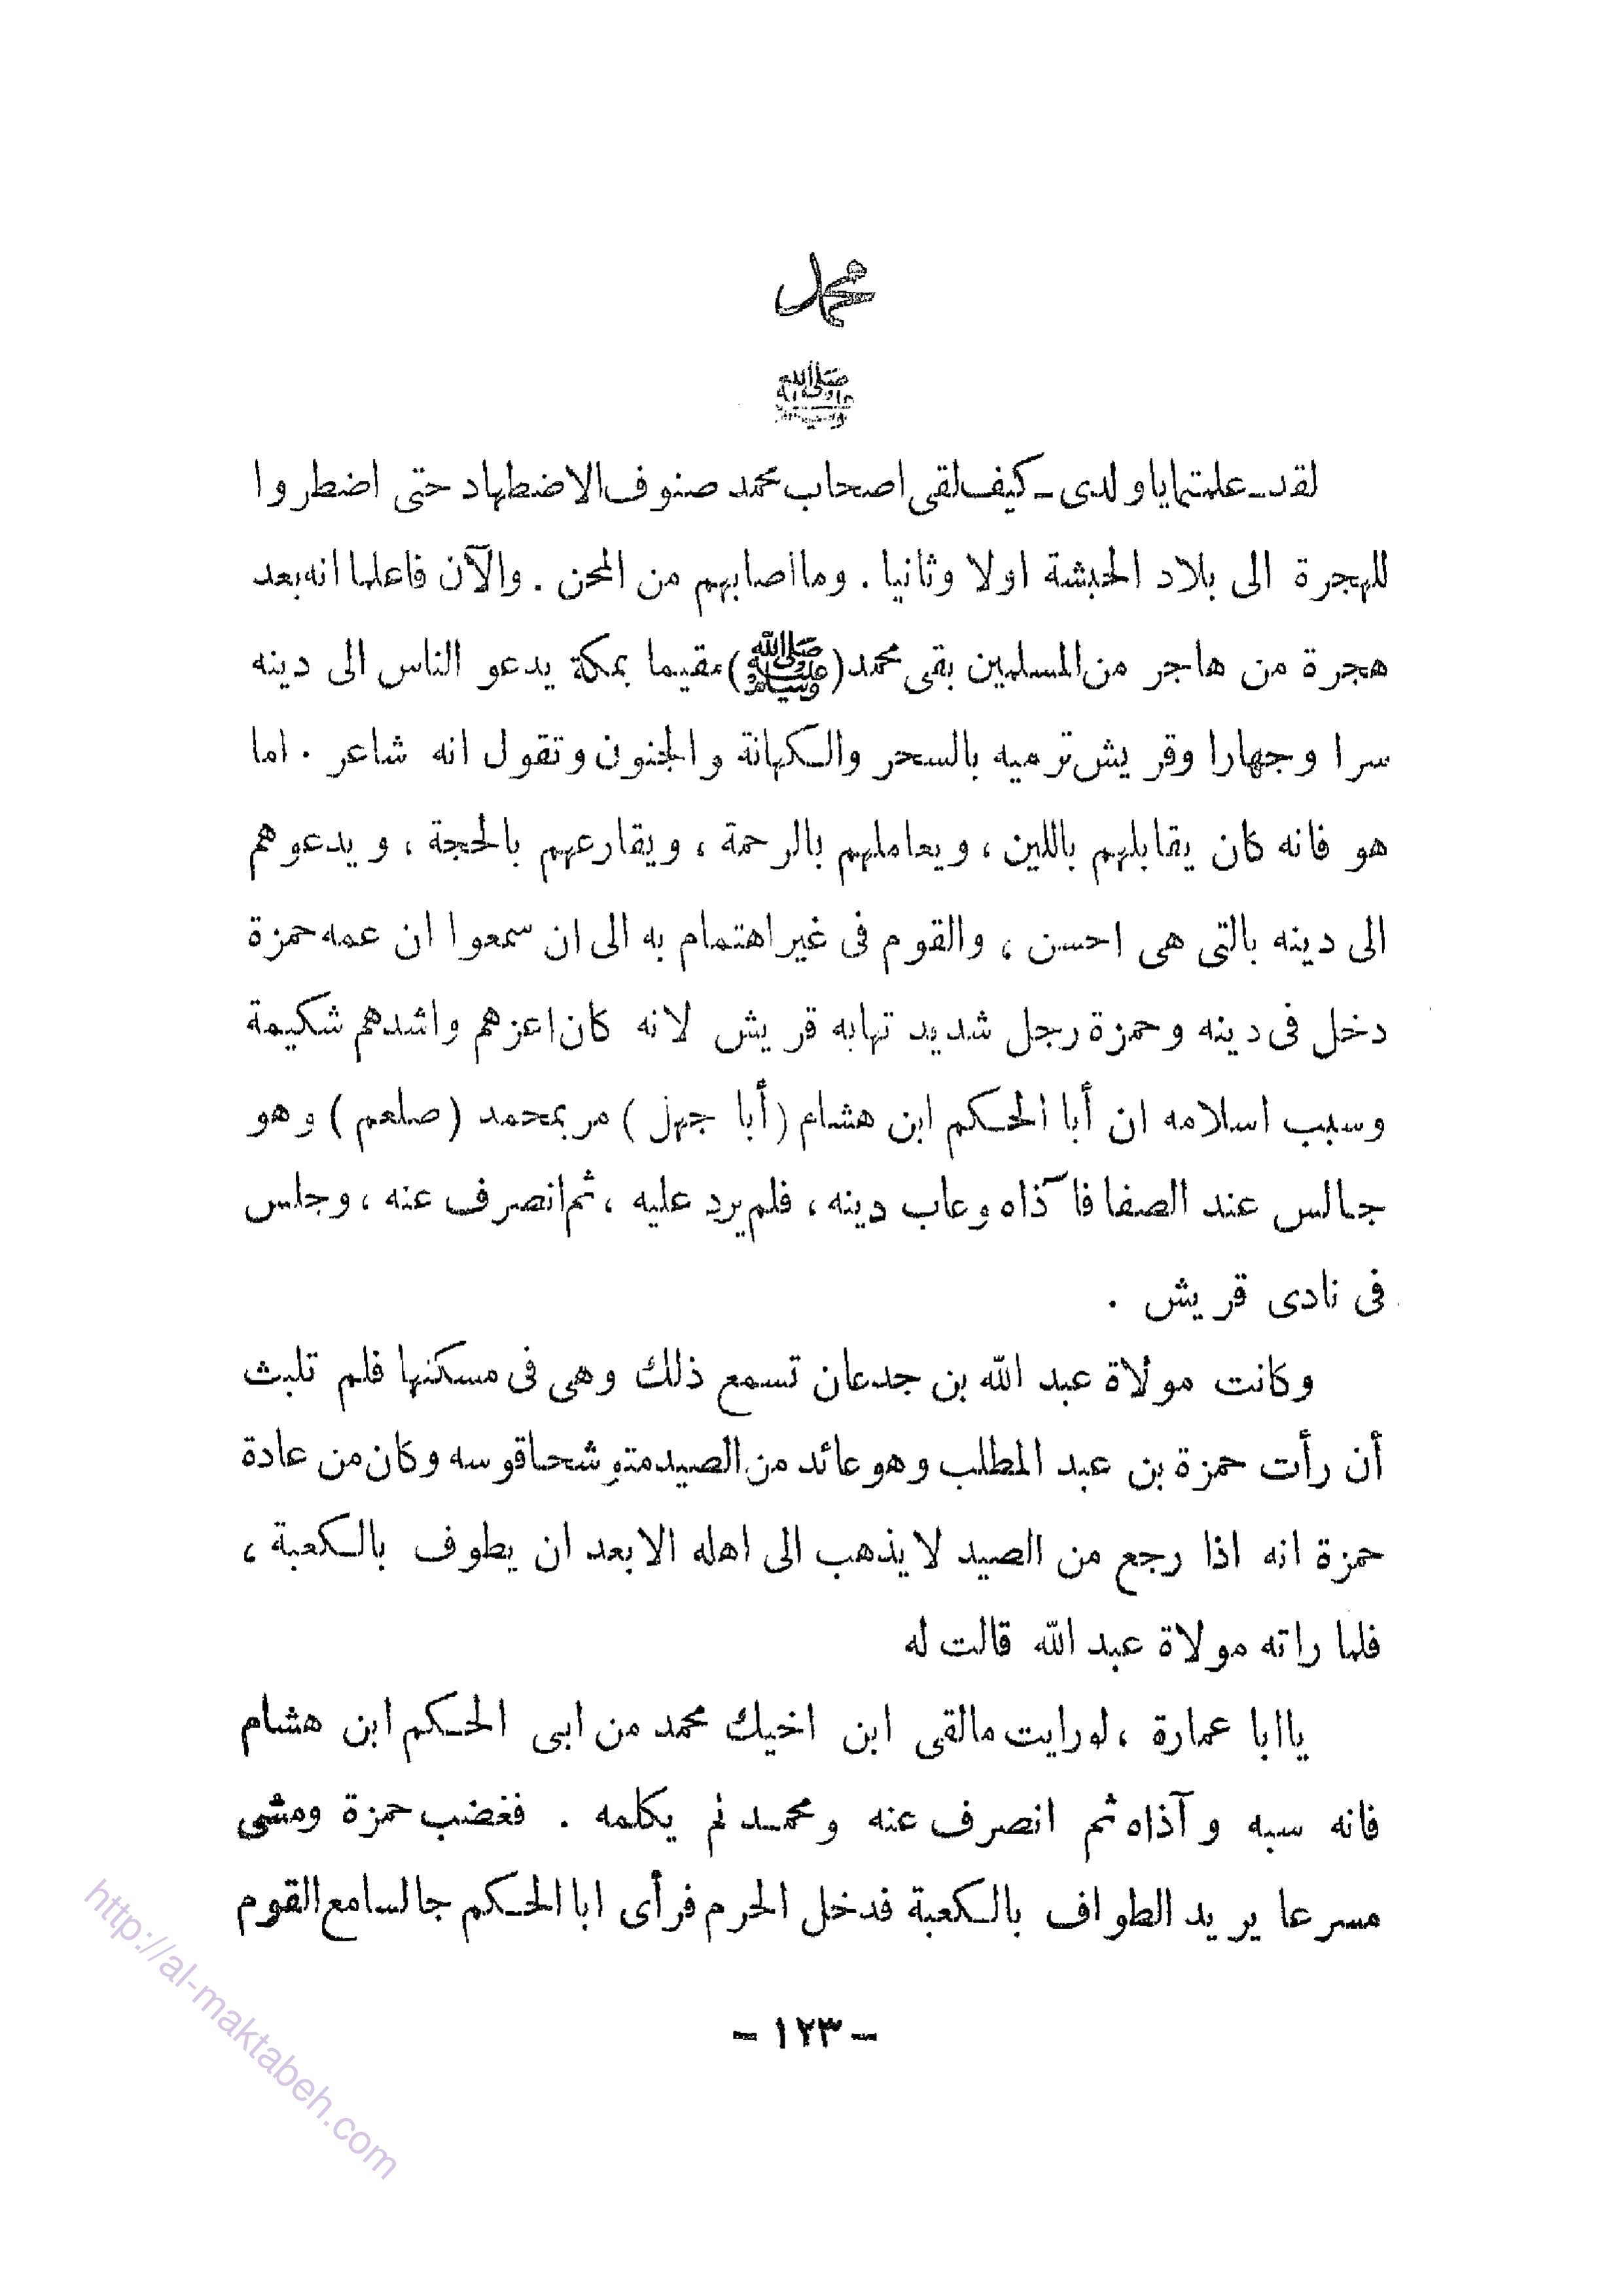 محمد
ﷺ
لقد ـ علمتما ياولدى ـ كيف لقى اصحاب محمد صنوف الاضطهاد حتى اضطروا
للهجرة الى بلاد الحبشة اولا وثانيا . وما اصابهم من المحن . والآن فاعلما انه بعد
هجرة من هاجر من المسلمين بقى محمد (ﷺ) مقيما بمكة يدعو الناس الى دينه
سرا وجهارا وقريش ترميه بالسحر والكهانة والجنون وتقول انه شاعر . اما
هو فانه كان يقابلهم باللين ، ويعاملهم بالرحمة ، ويقارعهم بالحجة ، ويدعوهم
الى دينه بالتى هى احسن ، والقوم فى غير اهتمام به الى ان سمعوا ان عمه حمزة
دخل فى دينه وحمزة رجل شديد تهابه قريش لانه كان اعزهم واشدهم شكيمة
وسبب اسلامه ان أبا الحكم ابن هشام (أبا جهل) مر بمحمد (صلعم) وهو
جالس عند الصفا فآذاه وعاب دينه ، فلم يرد عليه ، ثم انصرف عنه ، وجلس
فى نادى قريش .
وكانت مولاة عبد الله بن جدعان تسمع ذلك وهى فى مسكنها فلم تلبث
أن رأت حمزة بن عبد المطلب وهو عائد من الصيد متوشحا قوسه وكان من عادة
حمزة انه اذا رجع من الصيد لا يذهب الى اهله الا بعد ان يطوف بالكعبة ،
فلما راته مولاة عبد الله قالت له
يا ابا عمارة ، لو رايت مالقى ابن اخيك محمد من ابى الحكم ابن هشام
فانه سبه وآذاه ثم انصرف عنه ومحمد لم يكلمه . فغضب حمزة ومشى
مسرعا يريد الطواف بالكعبة فدخل الحرم فرأى ابا الحكم جالسا مع القوم
– ١٢٣ –
http://al-maktabeh.com